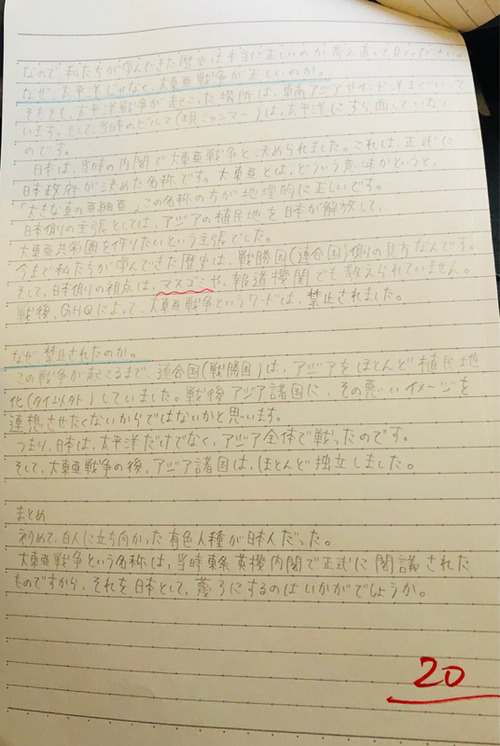 なので私たちが学んできた歴史は本当に正しいのか考え直って見てください。
なぜ、太平洋じゃなく、大東亜戦争が正しいのか。
そもそも、太平洋戦争が起こった場所は、東南アジアやインド洋まで
います。そして、当時のビルマ(現ミャンマー)は、太平洋にすら面していない
のです。
日本は、当時の内閣で大東亜戦争と決められました。これは、正式に
日本政府が決めた名称です。大東亜とは、どういう意味かというと、
「大きな東の亜細亜」この名称の方が地理的に正しいです。
日本側の主張としては、アジアの植民地を日本が解放して、
大東亜共栄圏を作りたいという主張でした。
今まで私たちが学んできた歴史は、戦勝国(連合国)側の見方なんです。
そして、日本側の視点は、マスゴミや、報道機関でも教えられていません。
戦後、GHQによって、大東亜戦争というワードは、禁止されました。
なぜ、禁止されたのか。
この戦争が起こるまで、連合国(戦勝国)は、アジアをほとんど植民地
化(タイ以外)していました。戦後アジア諸国に、その悪いイメージを
連想させたくないからではないかと思います。
つまり、日本は、太平洋だけでなく、アジア全体で戦ったのです。
そして、大東亜戦争の後、アジア諸国は、ほとんど独立しました。
まとめ
初めて、白人に立ち向かった有色人種が日本人だった。
大東亜戦争という名称は、当時東条英機内閣で正式に閣議された
ものですから、それを日本として、蔑ろにするのはいかがでしょうか。
20